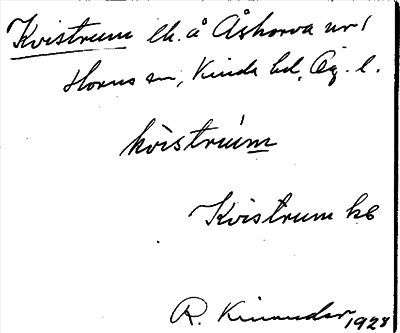 Kvistrum lh. å Åshorva nr 1
Horns sn, Kinda hd, Ög. l.
kvistrúm
Kvistrum hb
R. Kinander 1928